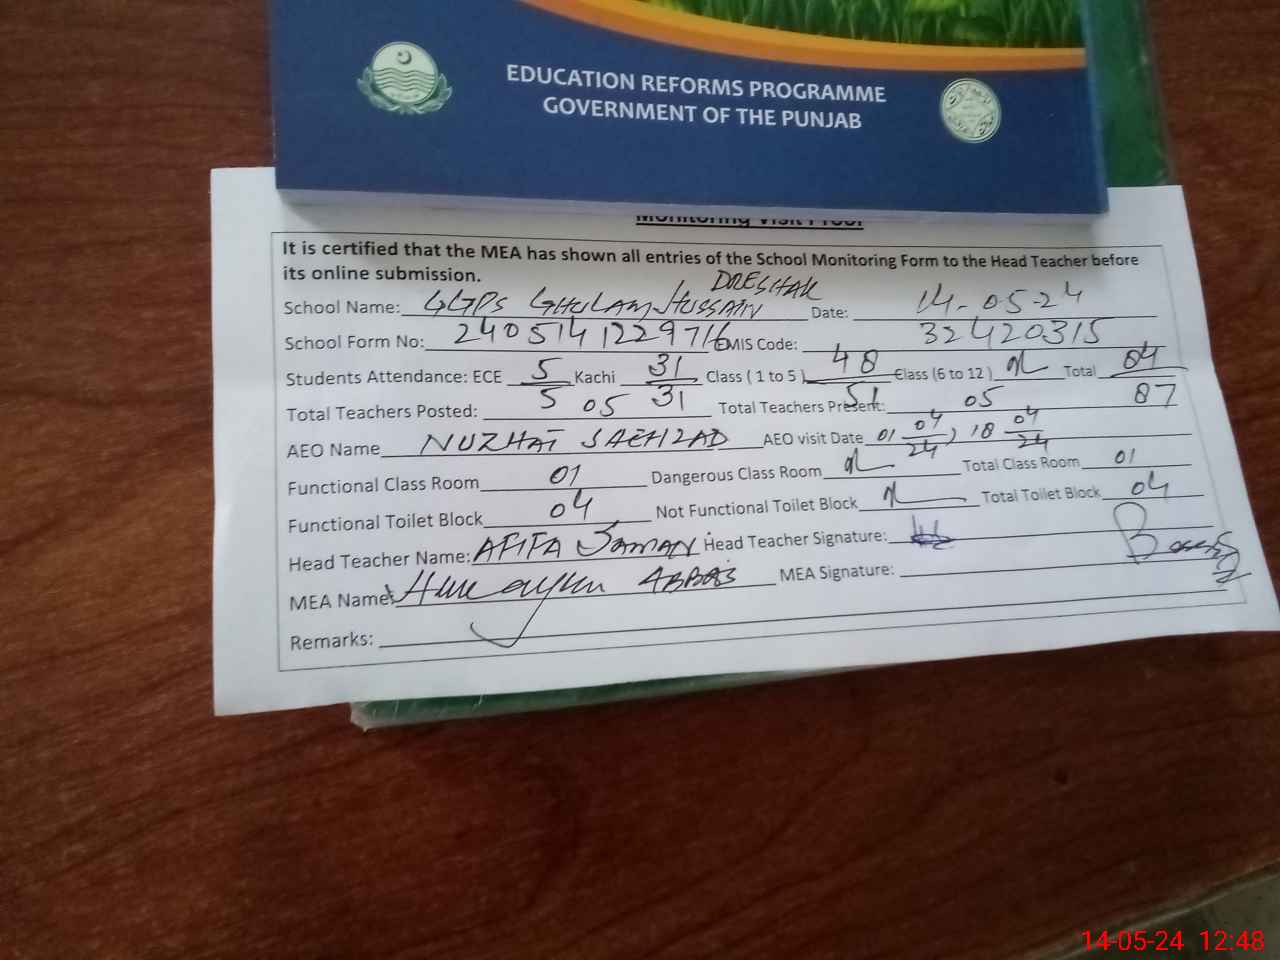 EDUCATION REFORMS PROGRAMME
GOVERNMENT OF THE PUNJAB
Monitoring Visit Proof
It is certified that the MEA has shown all entries of the School Monitoring Form to the Head Teacher before
its online submission.
School Name: GGPS GHULAM HUSSAIN DRESHAK Date: 14-05-24
School Form No: 240514122971 EMIS Code: 32420315
Students Attendance: ECE 5/5 Kachi 31/31 Class ( 1 to 5 ) 48/51 Class (6 to 12 ) Total 84/87
Total Teachers Posted: 05 Total Teachers Present: 05
AEO Name NUZHAT SAEHZAD AEO visit Date 01 04/24, 18 04/24
Functional Class Room 01 Dangerous Class Room Total Class Room 01
Functional Toilet Block 04 Not Functional Toilet Block Total Toilet Block 04
Head Teacher Name: AFIFA Head Teacher Signature:
MEA Name: ABBAS MEA Signature:
Remarks:
14-05-24 12:48